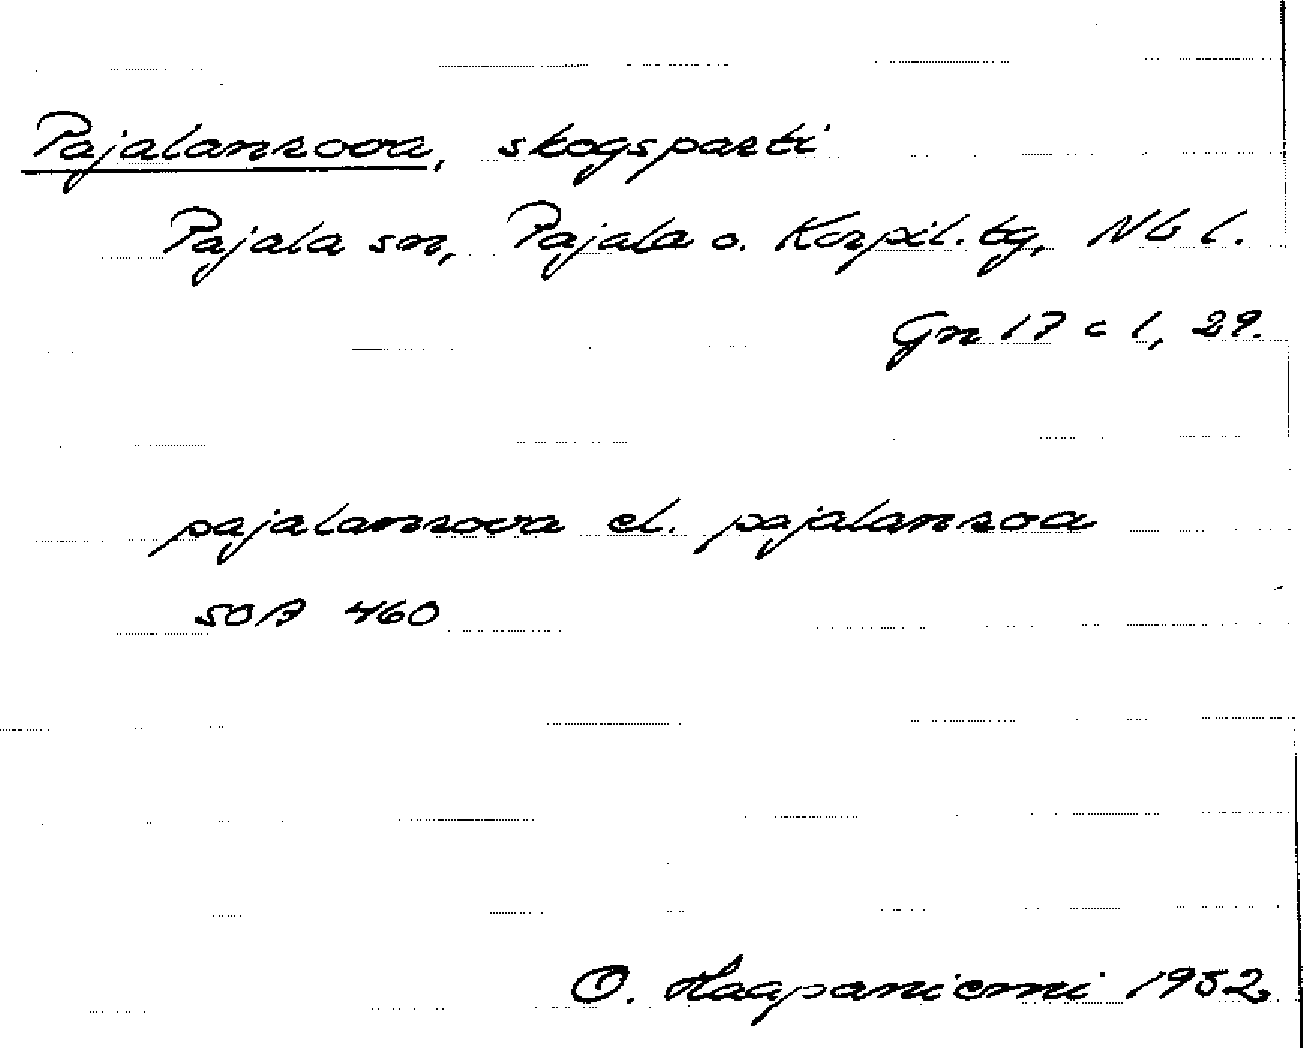 Pajalanrova, skogsparti
Pajala sn, Pajala o. Korpil. tg, Nb l.
Gn 17 c 1, 29.
pajalanrova el. pajalanroa
SOA 460
O. Haapaniemi 1952